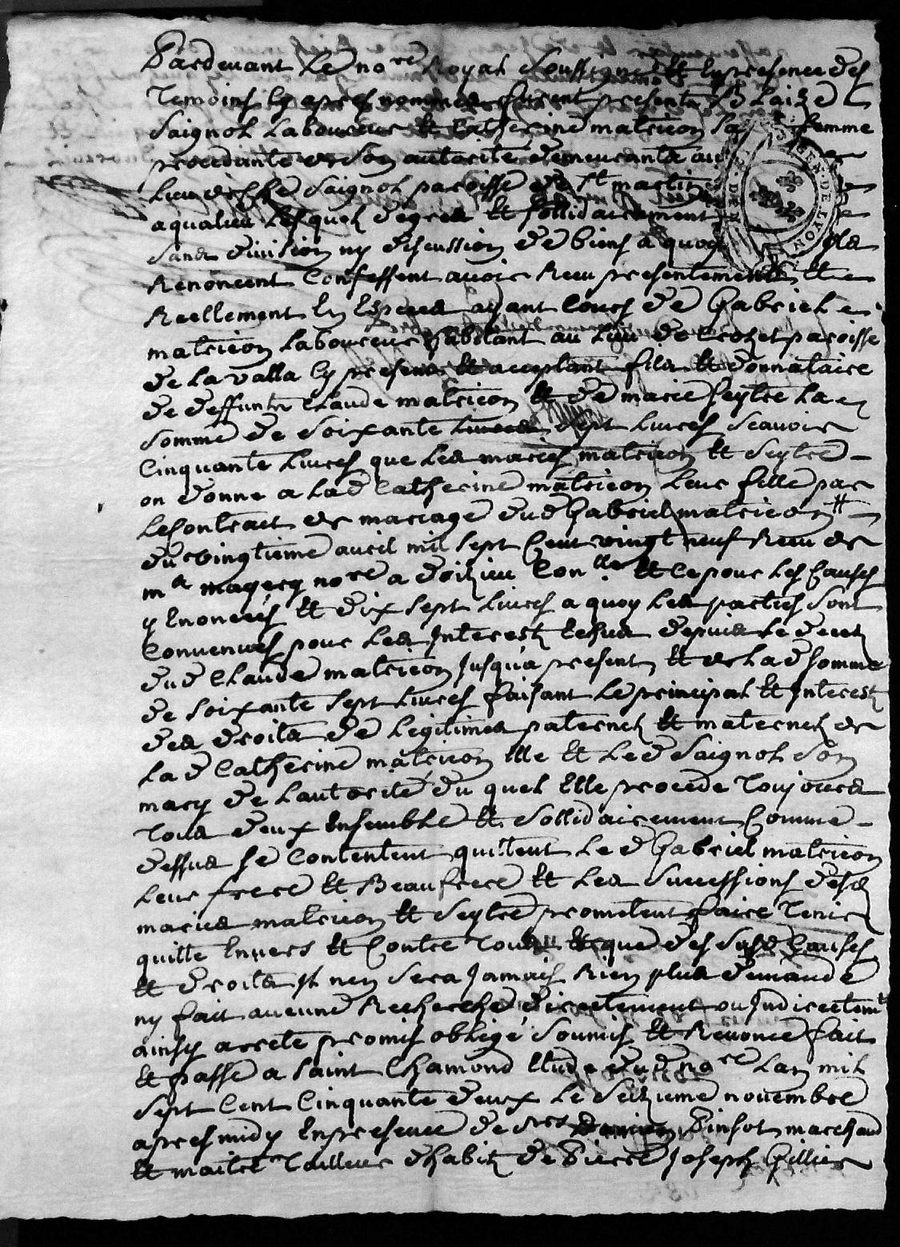 Pardevant Le no.re Royal Soussigné et En presence des
Temoins Cy apres nommés furent presents Sr
Saignol Laboureur et Catherine matricon Sa femme
procedante de Son autorité demeurants au
Lieu de chez Saignol paroisse de St martin
aqualieu Lesquels degrés et sollidairement
sans division ny discussion de biens a quoy ils
Renoncent Confessent avoir Reçu presentement et
Reellement En Especes ayant Cours de Gabriel
matricon Laboureur habitant au Lieu de Crozet paroisse
de La valla Cy present et acceptant fils et donnataire
de deffunts Claude matricon et de marie Seytre La
somme de Soixante sept Livres Scavoir
Cinquante Livres que Les mariés matricon et Seytre
on donné a Lad Catherine matricon Leur fille par
Le Contrait de mariage dud Gabriel matricon
du vingtieme avril mil sept Cent vingt neuf Reçu de
me no.re a doizieu Con.lle et Ce pour Les Causes
y Enoncées et dix sept Livres a quoy Les parties Sont
Convenues pour Les Interest Echus depuis Le decez
dud Claude matricon Jusqu'a present et de Lad Somme
de Soixante sept Livres faisant Le principal et Interest
des droits de Legitimes paternel et maternel de
La d Catherine matricon Elle et Led Saignol Son
mary de Lautorité du quel Elle procede Toujours
Tous deux Ensemble et Sollidairement Comme
dessus se Contentent quittent Le d Gabriel matricon
Leur frere et Beaufrere et Les Successions desd
mariés matricon et Seytre promettent faire Tenir
quitte Envers et Contre Tous et que des Susd Causes
et droits Il n'en Sera Jamais Rien plus demandé
ny fait aucune Recherche directement ou Indirectem.t
ainsy arreté promis obligé Soumis et Renoncé fait
et passé a Saint Chamond Etude dud no.re Lan mil
Sept Cent Cinquante deux Le Seizieme novembre
apres midy En presence de Pinsot marchand
et maitre Tailleur d'habits de Pierre Joseph Gillier
GEN. DE LYON